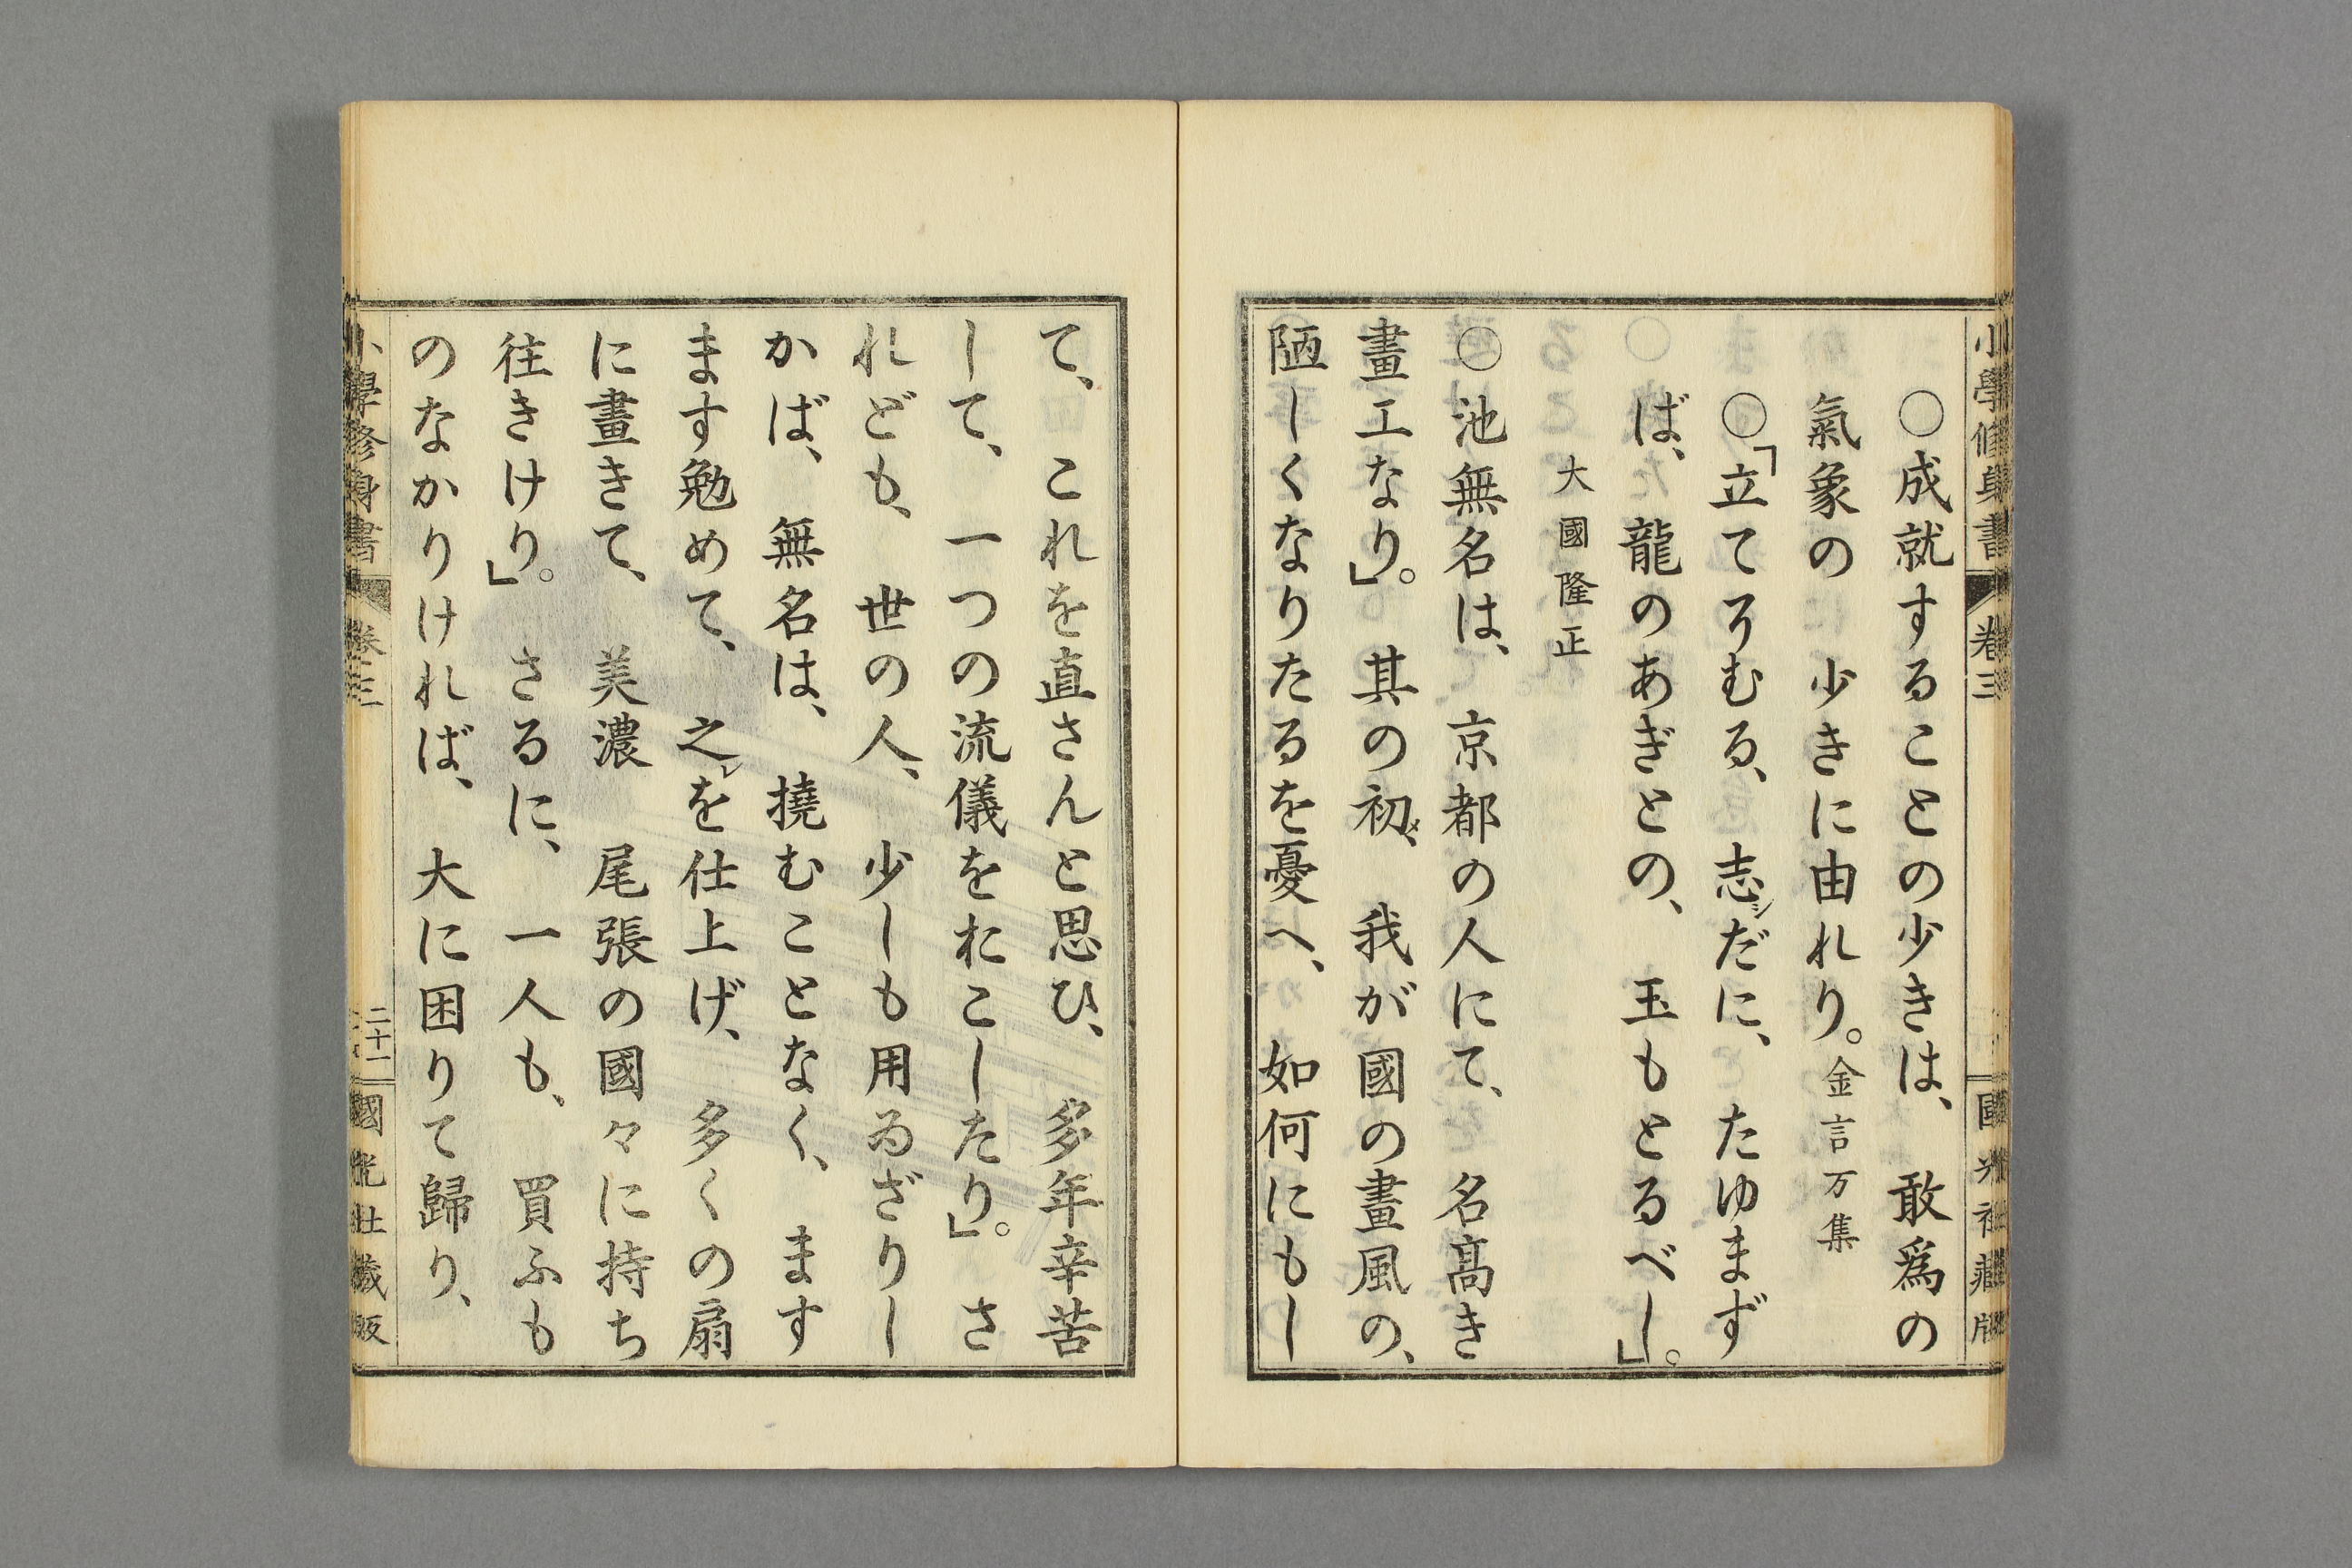 小學修身書 卷三 國光社藏版
○成就することの少きは、 敢爲の
氣象の 少きに由れり。金言万集
○「立てそむる、 志シだに、 たゆまず
ば、龍のあぎとの、 玉もとるべし」。
大國隆正
○池無名は、 京都の人にて、 名髙き
畫工なり」。 其の初メ、 我が國の畫風の、
陋しくなりたるを憂へ、 如何にもし
て、 これを直さんと思ひ、 多年辛苦
して、 一つの流儀をおこしたり」。 さ
れども、 世の人、 少しも用ゐざりし
かば、 無名は、 撓むことなく、 ます
ます勉めて、 之レを仕上げ、 多くの扇
に畫きて、 美濃 尾張の國々に持ち
往きけり」。 さるに、 一人も、 買ふも
のなかりければ、 大に困りて歸り、
小學修身書 卷三 二十一 國光社藏版